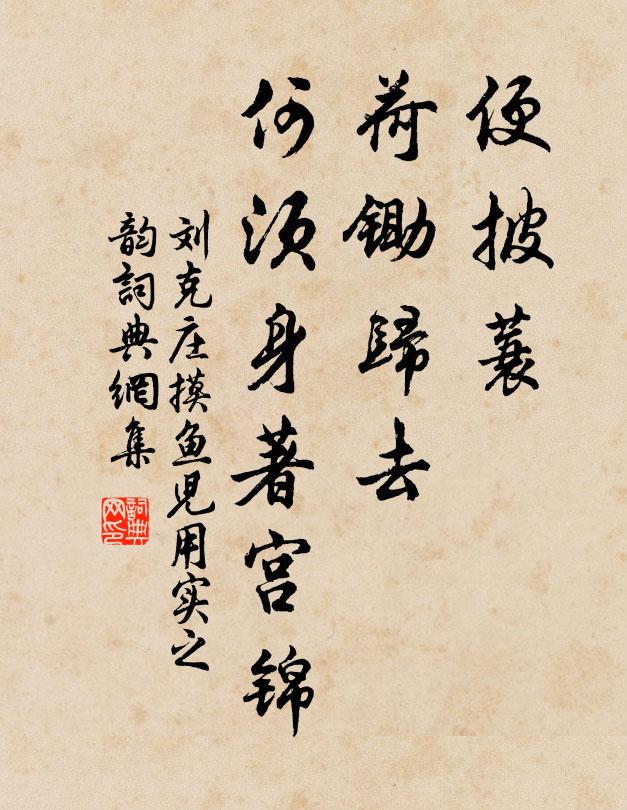 便披蓑
荷锄歸去
何须身著宫锦
刘克庄摸鱼児用实之
韵詞典網集
詞典网印